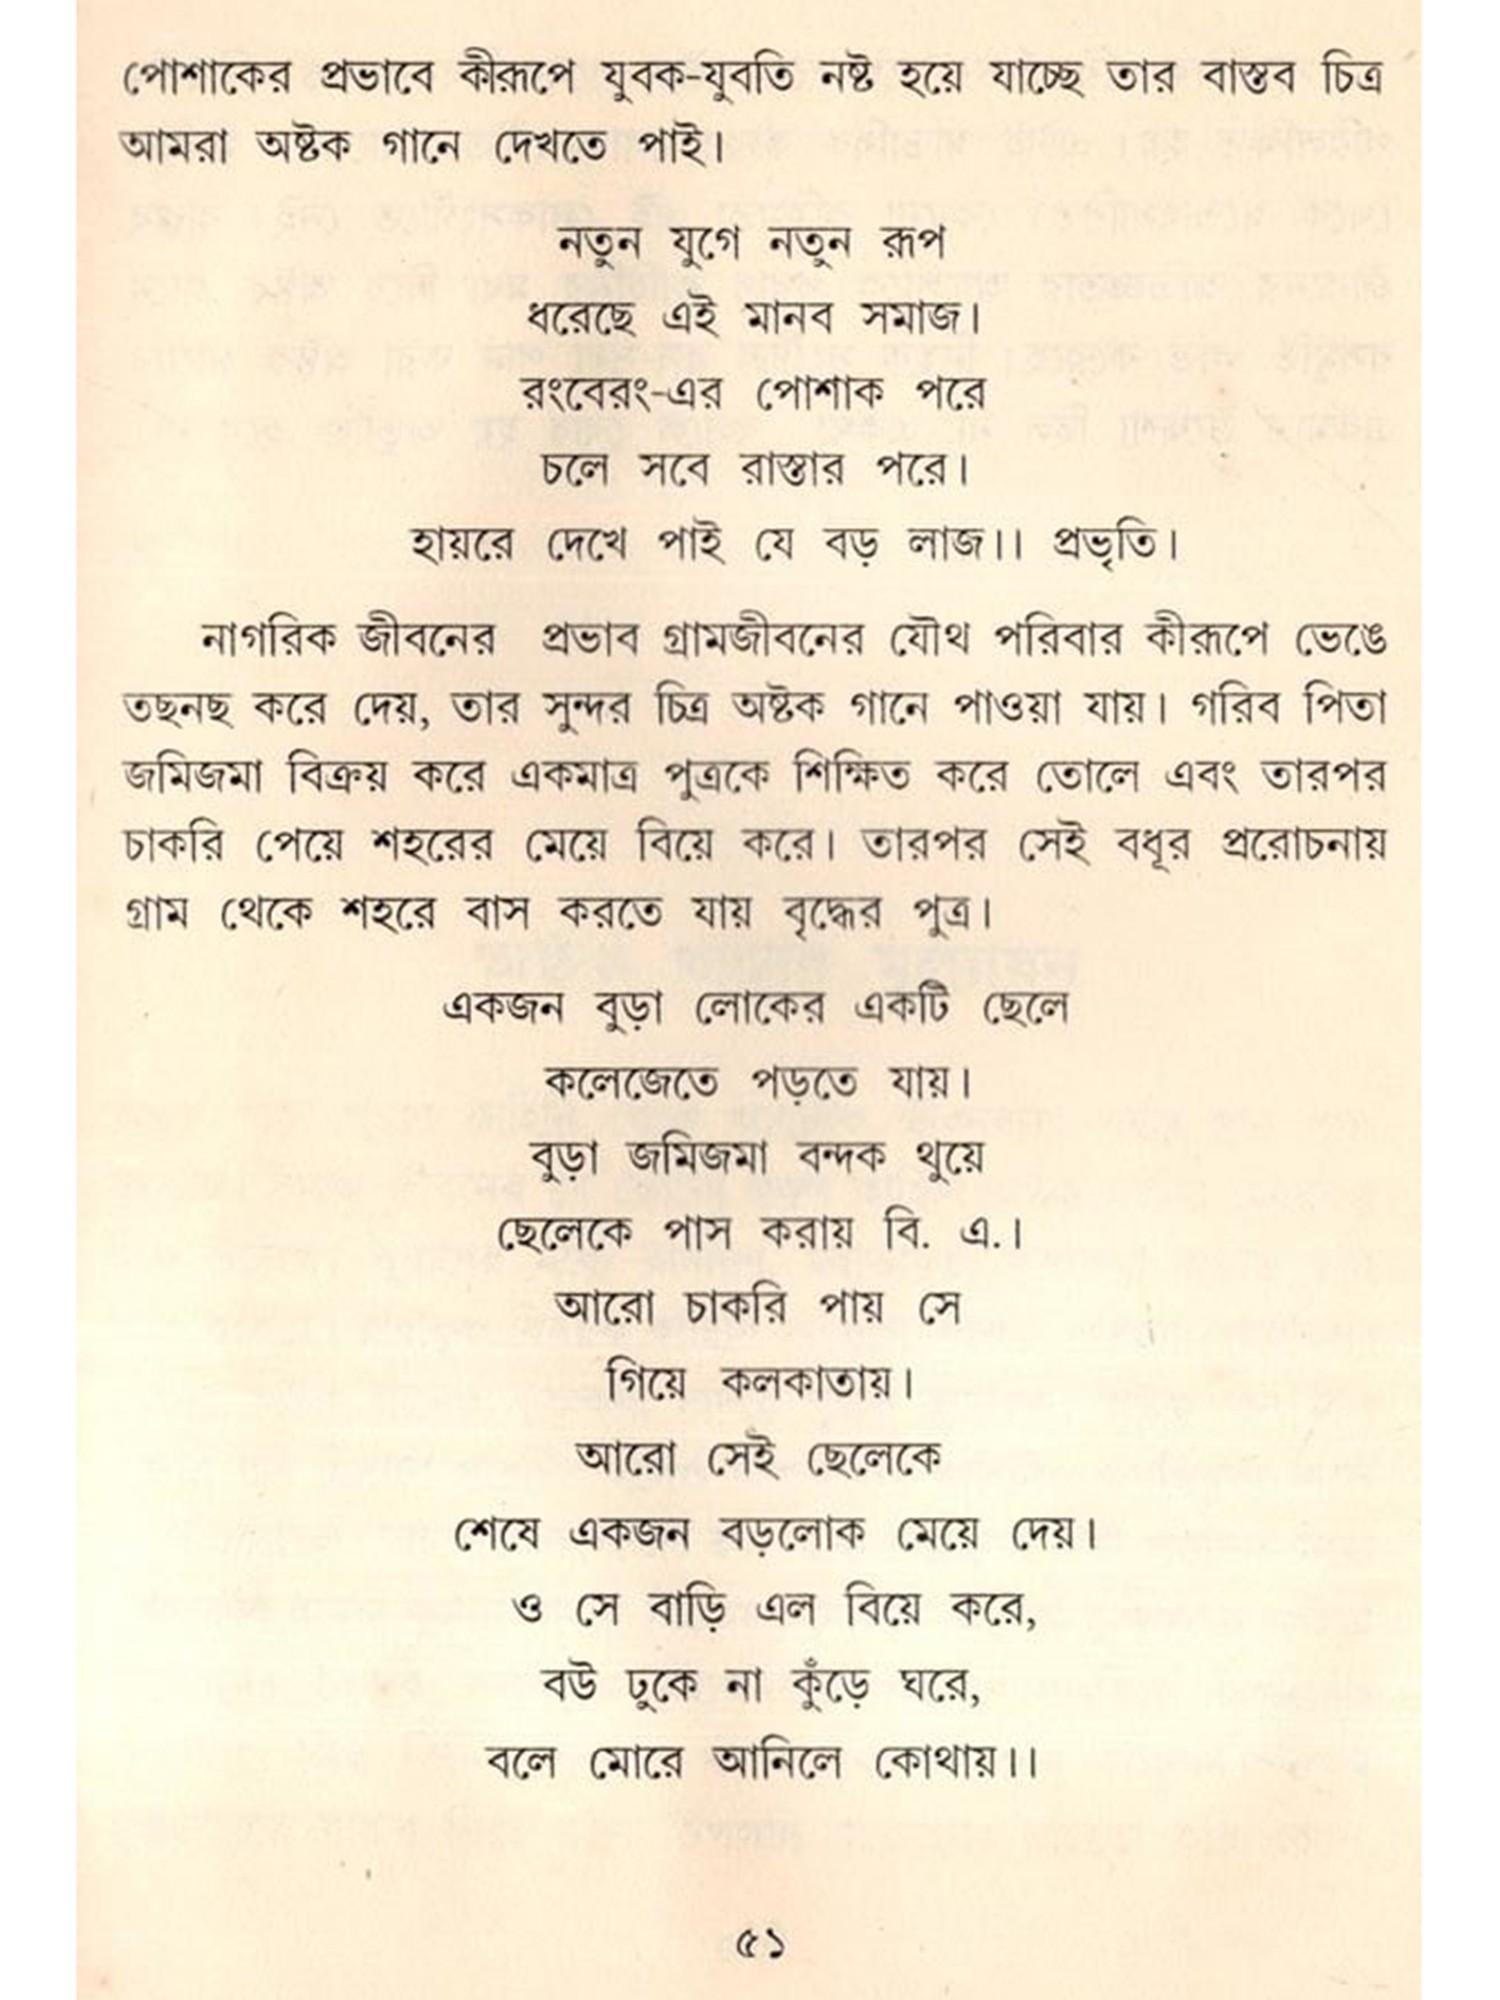 পোশাকের প্রভাবে কীরূপে যুবক-যুবতি নষ্ট হয়ে যাচ্ছে তার বাস্তব চিত্র
আমরা অষ্টক গানে দেখতে পাই।
নতুন যুগে নতুন রূপ
ধরেছে এই মানব সমাজ।
রংবেরং-এর পোশাক পরে
চলে সবে রাস্তার পরে।
হায়রে দেখে পাই যে বড় লাজ।। প্রভৃতি।
নাগরিক জীবনের প্রভাব গ্রামজীবনের যৌথ পরিবার কীরূপে ভেঙে
তছনছ করে দেয়, তার সুন্দর চিত্র অষ্টক গানে পাওয়া যায়। গরিব পিতা
জমিজমা বিক্রয় করে একমাত্র পুত্রকে শিক্ষিত করে তোলে এবং তারপর
চাকরি পেয়ে শহরের মেয়ে বিয়ে করে। তারপর সেই বধূর প্ররোচনায়
গ্রাম থেকে শহরে বাস করতে যায় বৃদ্ধের পুত্র।
একজন বুড়া লোকের একটি ছেলে
কলেজেতে পড়তে যায়।
বুড়া জমিজমা বন্দক থুয়ে
ছেলেকে পাস করায় বি. এ.।
আরো চাকরি পায় সে
গিয়ে কলকাতায়।
আরো সেই ছেলেকে
শেষে একজন বড়লোক মেয়ে দেয়।
ও সে বাড়ি এল বিয়ে করে,
বউ ঢুকে না কুঁড়ে ঘরে,
বলে মোরে আনিলে কোথায়।।
৫১